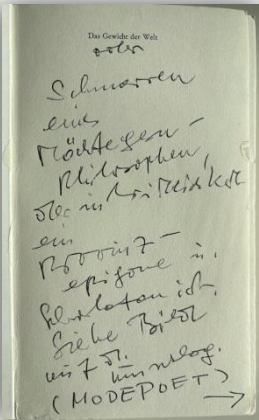 Das Gewicht der Welt
oder
Schmarren
eines
Möchtegern-
Philosophen,
der in Wirklichkeit
ein
Provinz-
epigone u.
Scharlatan ist.
Siehe Bild
auf d.
Umschlag.
(MODEPOET) →